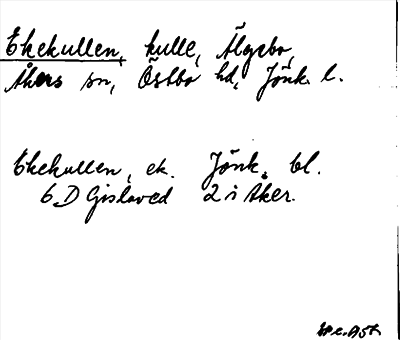 Ekekullen, kulle, Älgebo,
Åkers sn, Östbo hd, Jönk. l.
Ekekullen, ek. Jönk. bl.
6 D Gislaved 2 i Åker.